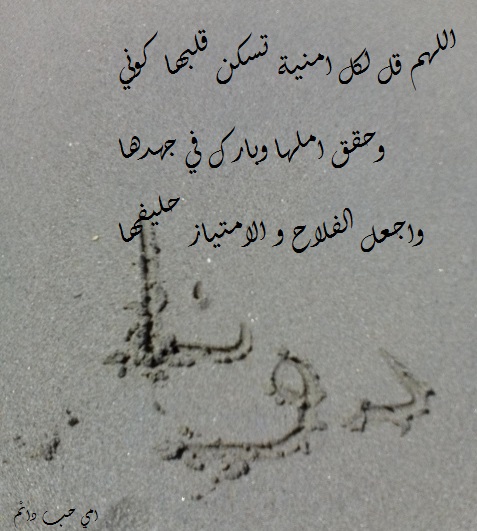 اللهم قل لكل امنية تسكن قلبها كوني
وحقق املها وبارك في جهدها
واجعل الفلاح و الامتياز حليفها
امي حب دائم